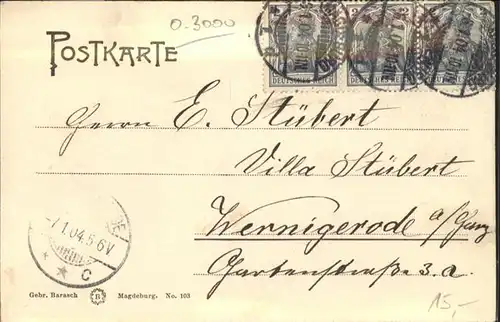 0.3000
POSTKARTE
DEUTSCHES REICH
Herrn E. Stübert
Villa Stübert
Wernigerode a/Harz
Gartenstraße 3.a.
7/1.04.5-6V
* * c
Gebr. Barasch B Magdeburg. No. 103
15,-